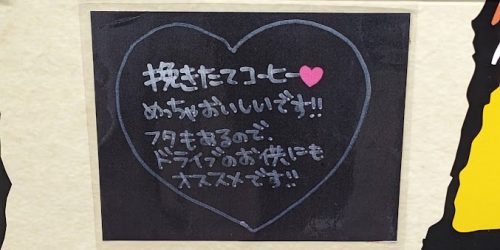 挽きたてコーヒー♥
めっちゃおいしいです!!
フタもあるので、
ドライブのお供にも
オススメです!!